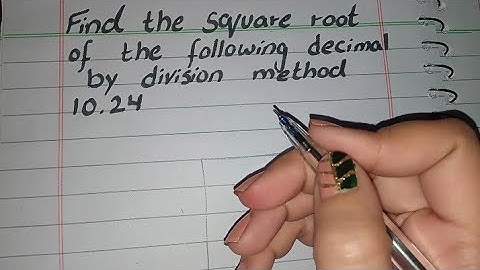 Find the square root
of the following decimal
by division method
10.24